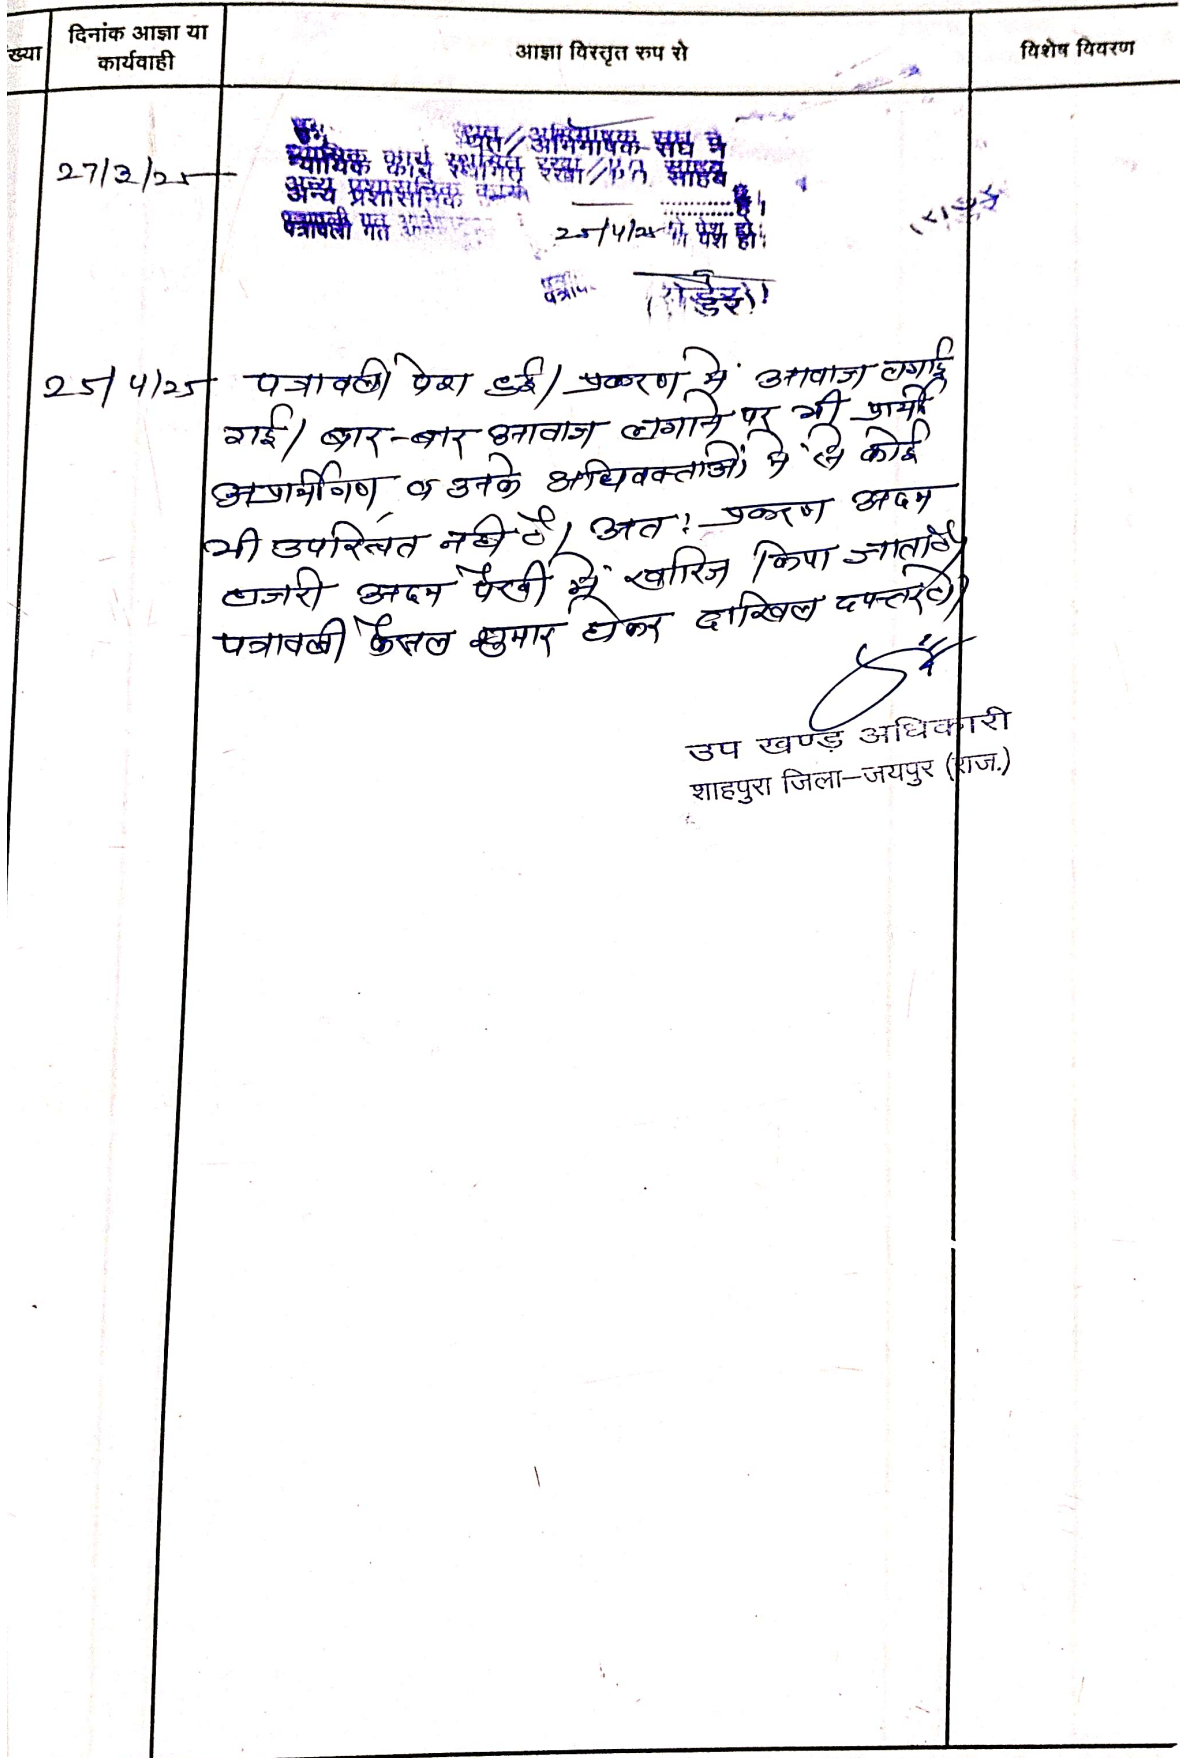 ख्या
दिनांक आज्ञा या
कार्यवाही
आज्ञा विस्तृत रुप से
विशेष विवरण
27/3/25
अभिभाषक संघ ने
न्यायिक कार्य स्थगित रखा
अन्य प्रशासनिक
पत्रावली गत 25/4/25 पेश हो।
25/4/25 पत्रावली पेश हुई/ प्रकरण में आवाज लगाई
गई/ बार-बार आवाज लगाने पर भी प्रार्थी
अप्रार्थीगण व उनके अधिवक्ताओं में से कोई
भी उपस्थित नहीं है/ अतः प्रकरण अदम
हाजरी अदम पैरवी में खारिज किया जाता है/
पत्रावली फैसल शुमार होकर दाखिल दफ्तर हो/
उप खण्ड अधिकारी
शाहपुरा जिला-जयपुर (राज.)